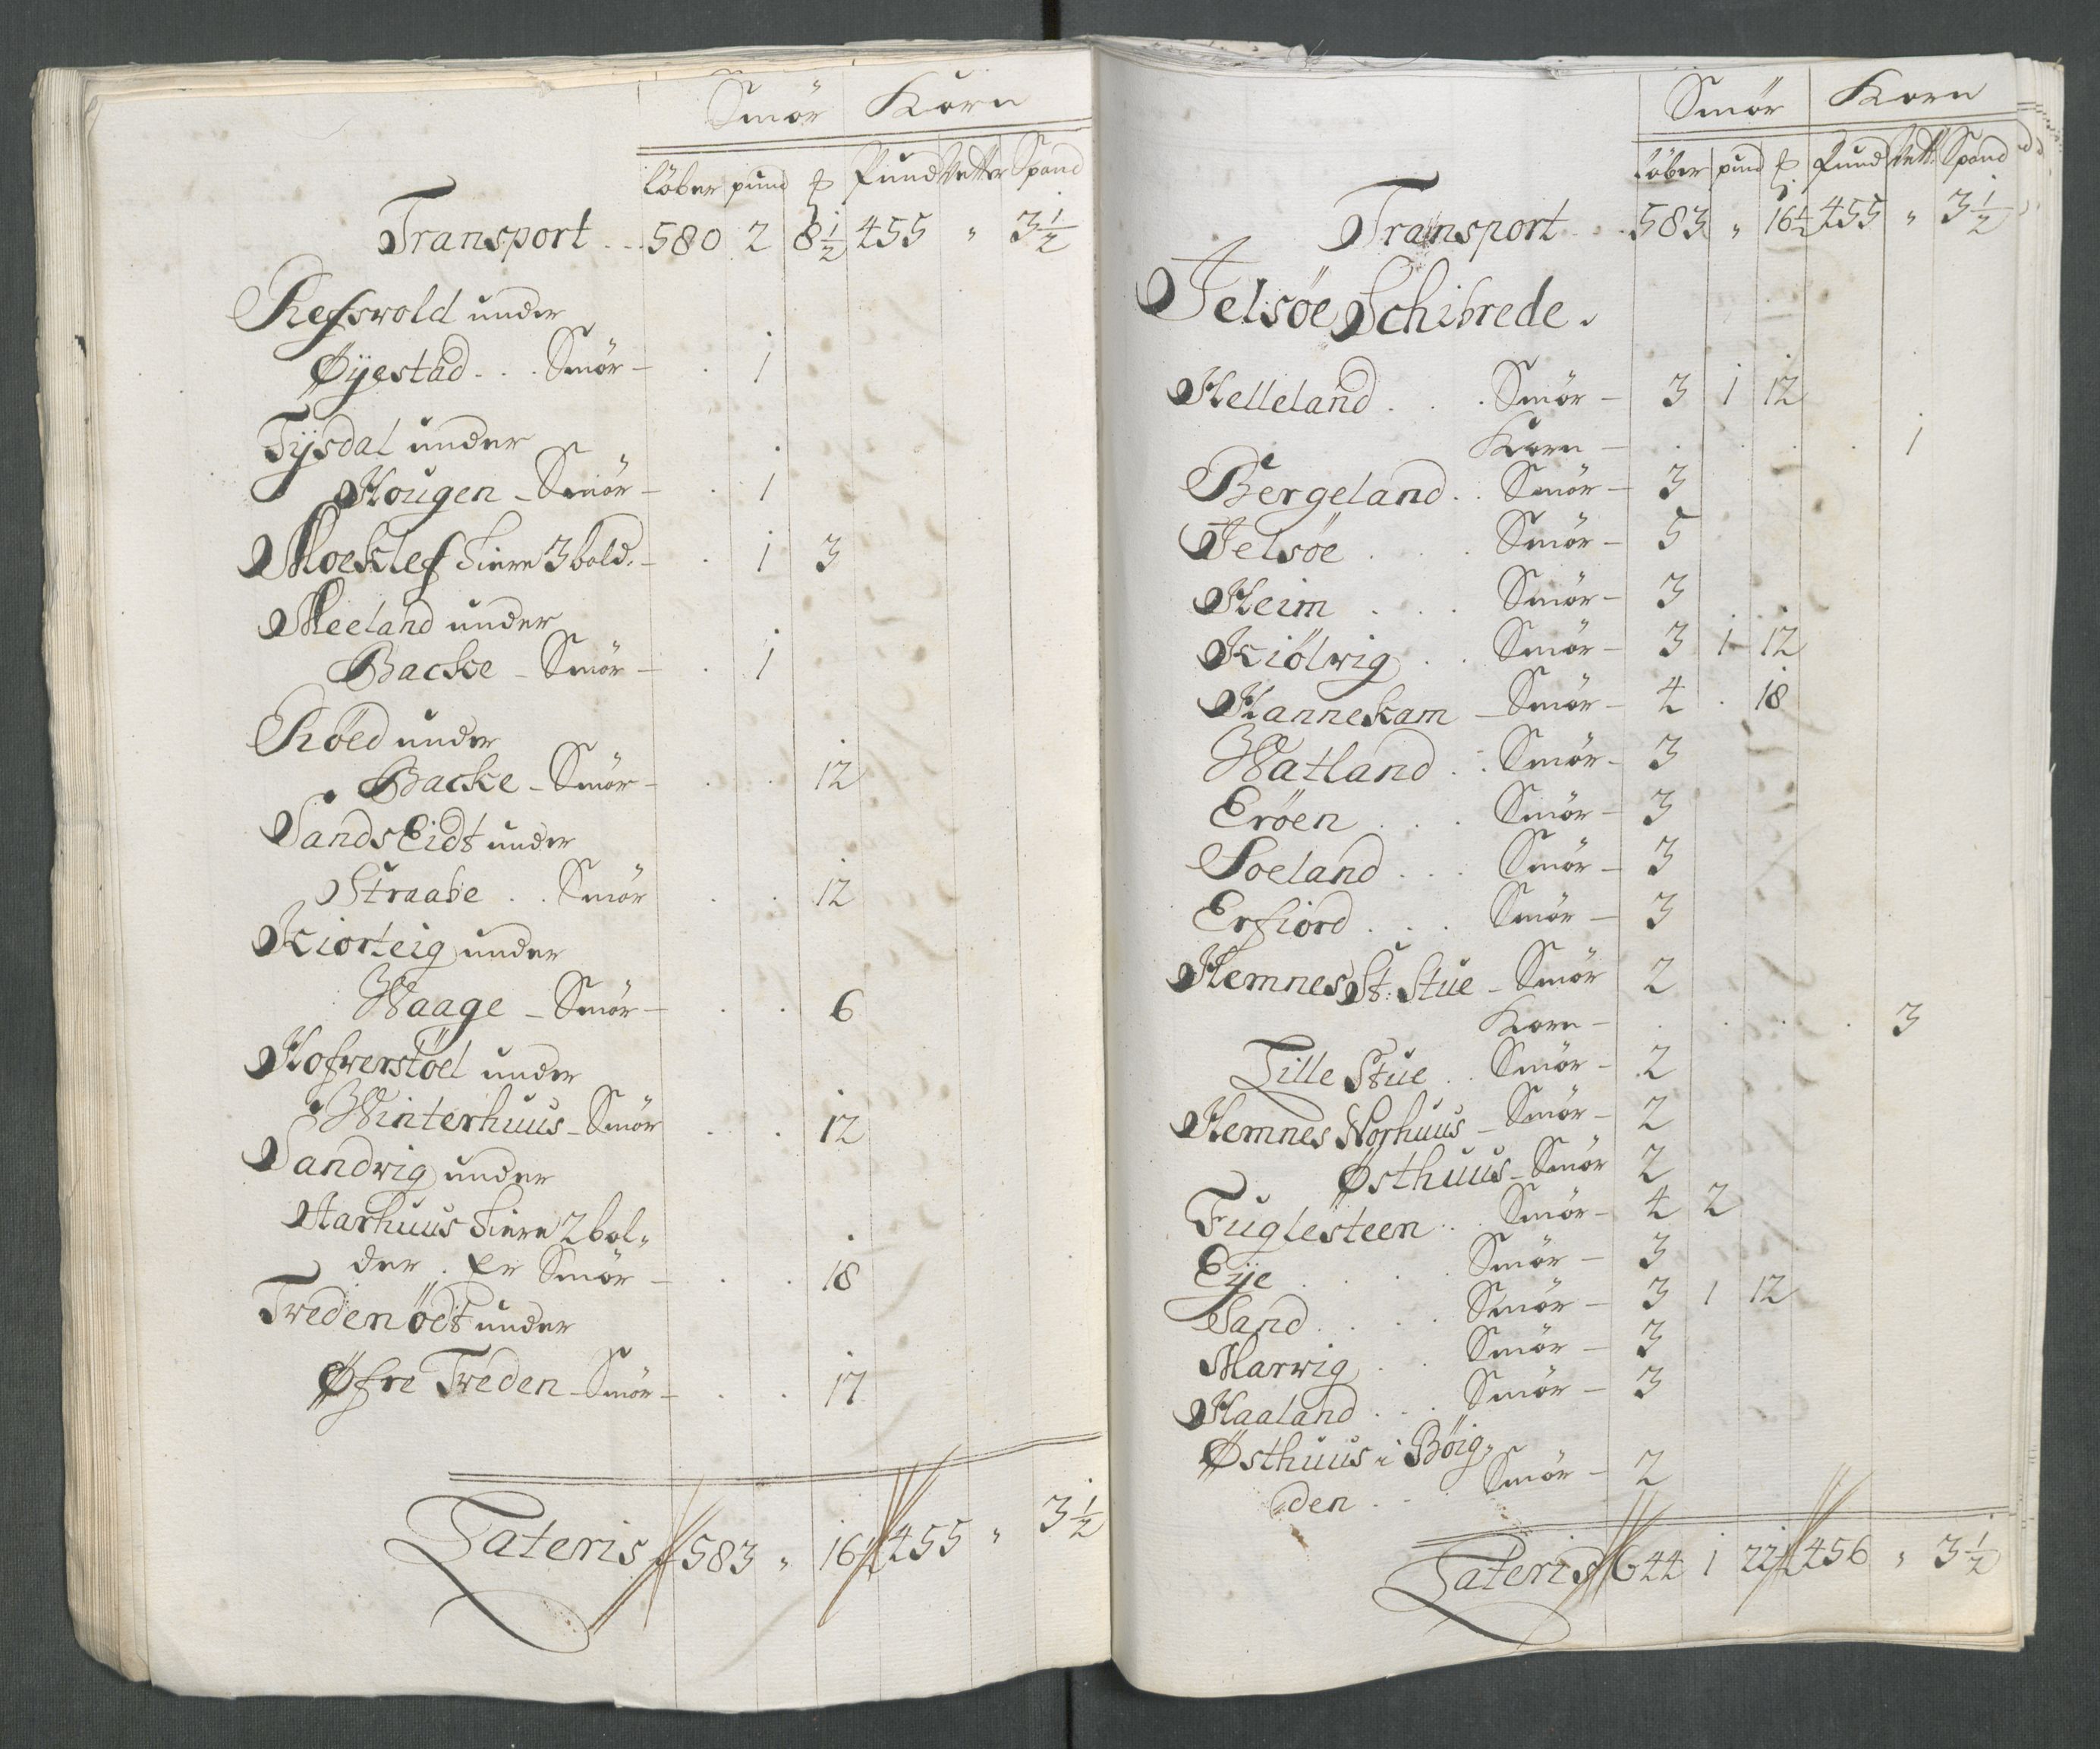 Smör Korn
löber pund ℔ Pund Vetter Spand
Transport . . 580 2 8½ 455 " 3½
Refsvold under
Øÿestad . . . Smör — . 1
Tÿsdal under
Hougen – Smör — . 1
Moeklef 3 bold. — . 1 3
Meeland under
Backe – Smör — . 1
Röed under
Backe – Smör — . . 12
Sands Eidt under
Straabe . . Smör . . 12
Kiorteig under
Waage – Smör — . . 6
Hofverstöel under
Winterhuus – Smör . . 12
Sandvig under
Aarhuus 2 bol„
der . Er Smör — . . 18
Tveden ödt under
Øfre Tveden – Smör — . . 17
Lateris 583 " 16½ 455 " 3½
Smör Korn
löber pund ℔ Pund Vett: Spand
Transport . . 583 " 16½ 455 " 3½
Jelsöe Schibrede .
Helleland . . . Smör — 3 1 12
Korn — . . . . 1
Bergeland . . Smör — 3
Jelsöe . . . Smör — 5
Heim . . . Smör — 3
Kiölvig . . Smör — 3 1 12
Hannekam – Smör — 4 . 18
Watland . . Smör — 3
Eröen . . . Smör — 3
Soeland . . . Smör — 3
Erfiord . . . Smör — 3
Hemnes St: Stue – Smör 2
Korn — . . . . 3
Lille Stue . . Smör — 2
Hemnes Norhuus – Smör — 2
Østhuus – Smör 2
Fuglesteen . . Smör — 4 2
Eÿe . . . . Smör — 3
Sand . . . . Smör — 3 1 12
Marvig . . Smör — 3
Haaland . . . Smör — 3
Østhuus i Böig„
den . . Smör — 2
Lateris 644 1 22½ 456 " 3½